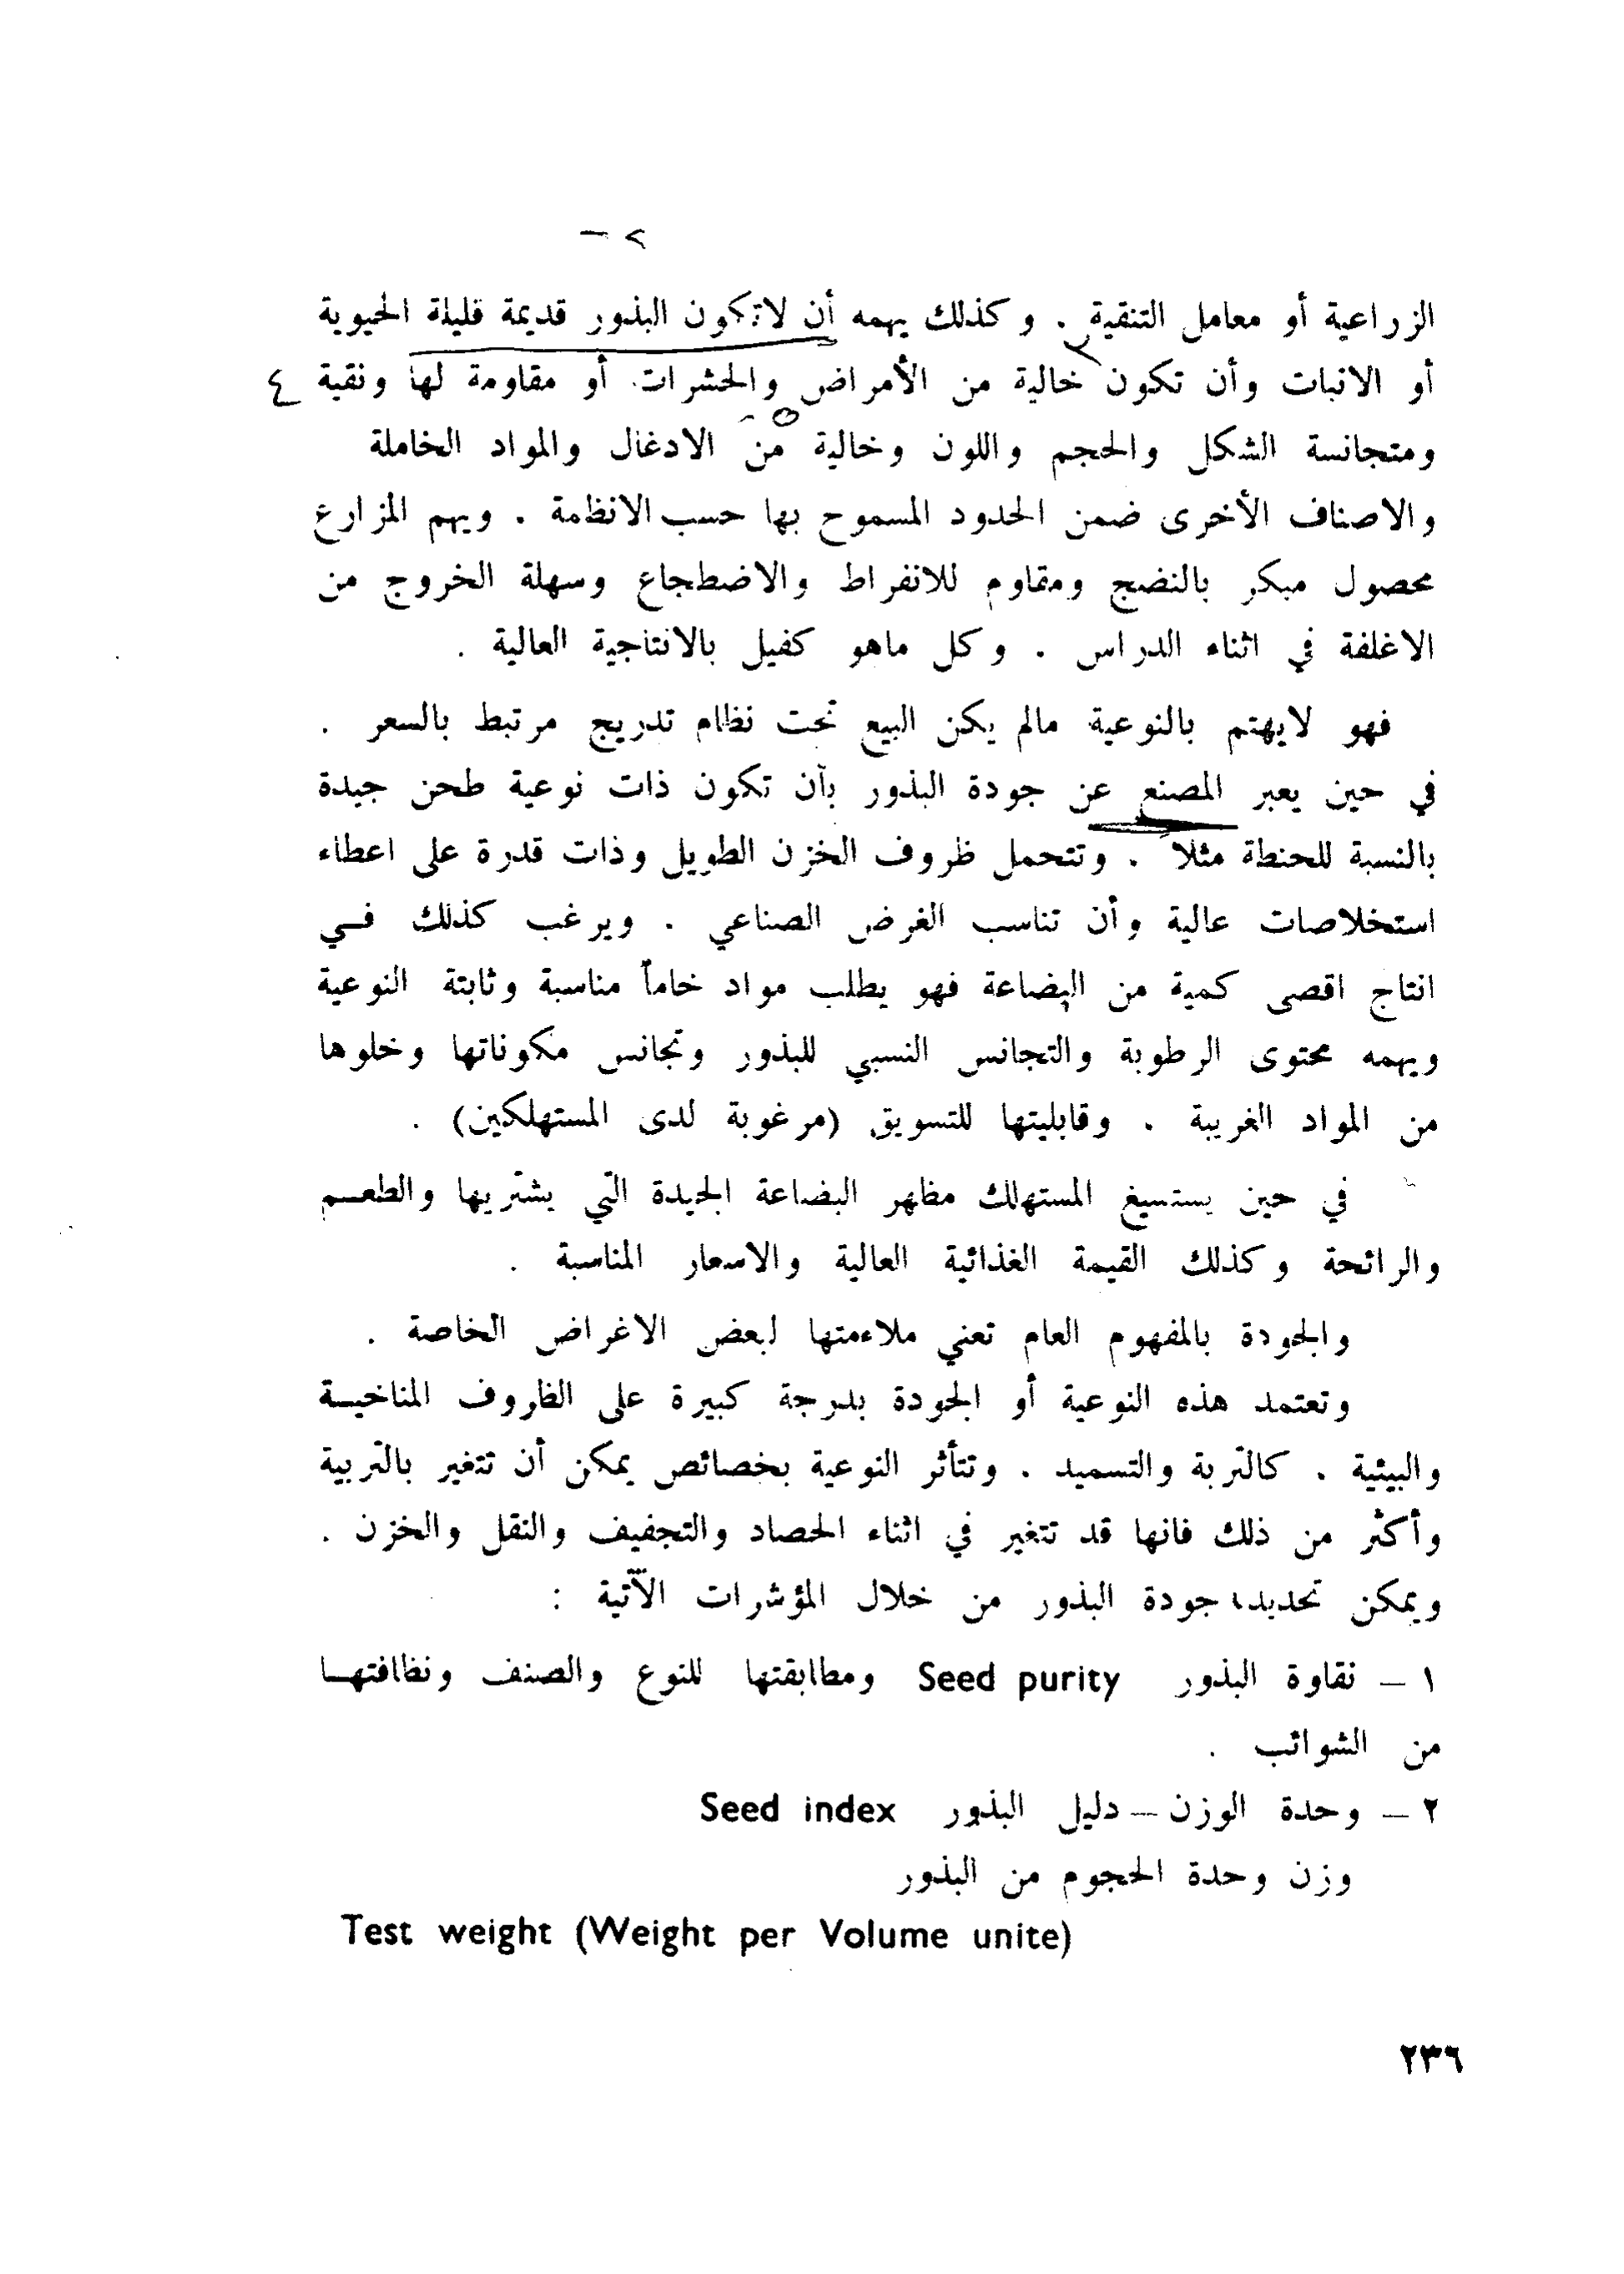 الزراعية أو معامل التنقية . وكذلك يهمه أن لاتكون البذور قديمة قليلة الحيوية
أو الانبات وأن تكون خالية من الأمراض والحشرات أو مقاومة لها ونقية ٤
ومتجانسة الشكل والحجم واللون وخالية من الادغال والمواد الخاملة
والاصناف الأخرى ضمن الحدود المسموح بها حسب الانظمة . ويهم المزارع
محصول مبكر بالنضج ومقاوم للانفراط والاضطجاع وسهلة الخروج من
الاغلفة في اثناء الدراس . وكل ماهو كفيل بالانتاجية العالية .
فهو لايهتم بالنوعية مالم يكن البيع تحت نظام تدريج مرتبط بالسعر .
في حين يعبر المصنع عن جودة البذور بأن تكون ذات نوعية طحن جيدة
بالنسبة للحنطة مثلاً . وتتحمل ظروف الخزن الطويل وذات قدرة على اعطاء
استخلاصات عالية وأن تناسب الغرض الصناعي . ويرغب كذلك فـي
انتاج اقصى كمية من البضاعة فهو يطلب مواد خاماً مناسبة وثابتة النوعية
ويهمه محتوى الرطوبة والتجانس النسبي للبذور وتجانس مكوناتها وخلوها
من المواد الغريبة . وقابليتها للتسويق (مرغوبة لدى المستهلكين) .
في حين يستسيغ المستهلك مظهر البضاعة الجيدة التي يشتريها والطعـم
والرائحة وكذلك القيمة الغذائية العالية والاسعار المناسبة .
والجودة بالمفهوم العام تعني ملاءمتها لبعض الاغراض الخاصة .
وتعتمد هذه النوعية أو الجودة بدرجة كبيرة على الظروف المناخيـة
والبيئية . كالتربة والتسميد . وتتأثر النوعية بخصائص يمكن أن تتغير بالتربية
وأكثر من ذلك فانها قد تتغير في اثناء الحصاد والتجفيف والنقل والخزن .
ويمكن تحديد جودة البذور من خلال المؤشرات الآتية :
١ – نقاوة البذور Seed purity ومطابقتها للنوع والصنف ونظافتهـا
من الشوائب .
٢ – وحدة الوزن – دليل البذور Seed index
وزن وحدة الحجوم من البذور
Test weight (Weight per Volume unite)
٢٣٦